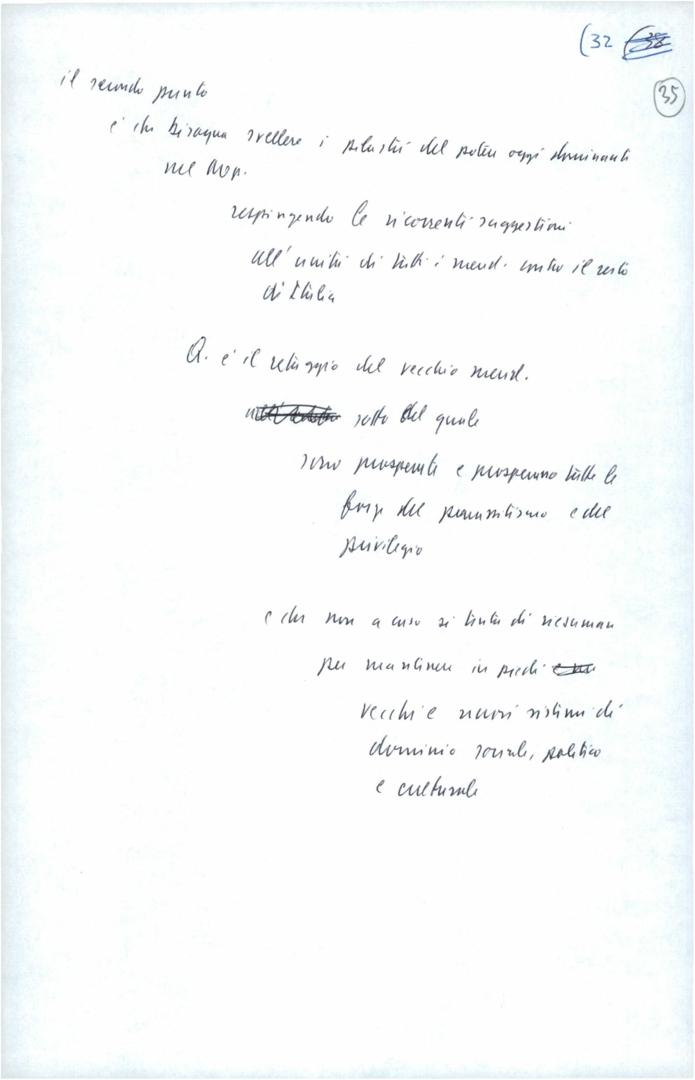 (32
35
il secondo punto
è che bisogna svellere i pilastri del potere oggi dominanti
nel Mop.
respingendo le ricorrenti suggestioni
all'unità di tutti i merid. contro il resto
di Italia
Q. è il retaggio del vecchio merid.
sotto del quale
sono prosperate e prosperano tutte le
forze del parassitismo e del
privilegio
e che non a caso si tenta di riesumare
per mantenere in piedi
vecchi e nuovi sistemi di
dominio sociale, politico
e culturale